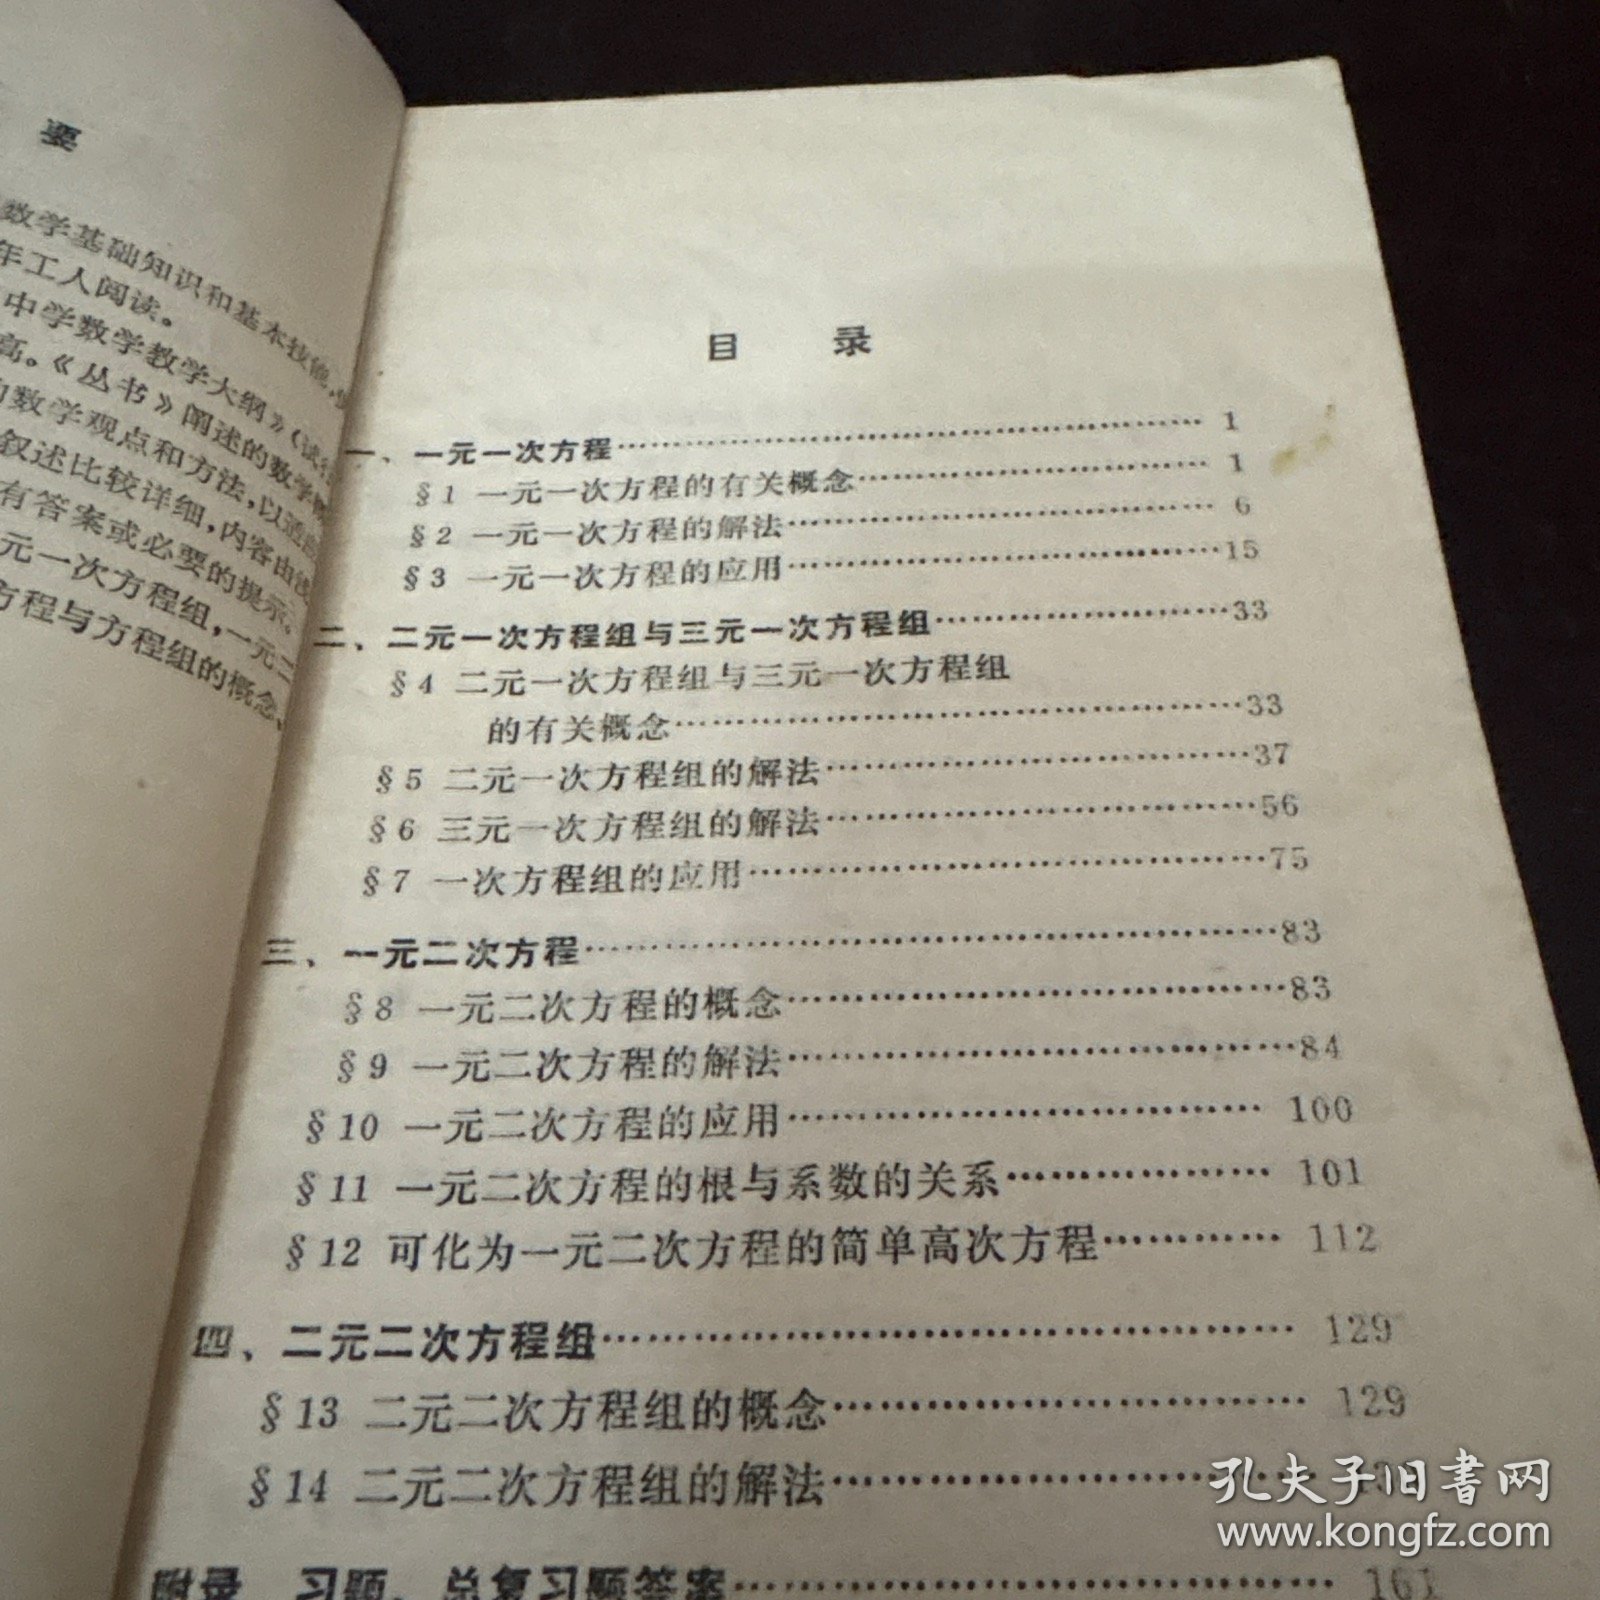 要
数学基础知识和基本技能,
年工人阅读。
中学数学教学大纲》(试行
高。《丛书》阐述的数学
的数学观点和方法,以通
叙述比较详细,内容由浅
有答案或必要的提示。
元一次方程组,一元二
方程与方程组的概念、
目 录
一、一元一次方程…………………………………… 1
§1 一元一次方程的有关概念……………………… 1
§2 一元一次方程的解法…………………………… 6
§3 一元一次方程的应用……………………………15
二、二元一次方程组与三元一次方程组………………33
§4 二元一次方程组与三元一次方程组
的有关概念……………………………………33
§5 二元一次方程组的解法…………………………37
§6 三元一次方程组的解法…………………………56
§7 一次方程组的应用………………………………75
三、一元二次方程………………………………………83
§8 一元二次方程的概念……………………………83
§9 一元二次方程的解法……………………………84
§10 一元二次方程的应用………………………… 100
§11 一元二次方程的根与系数的关系…………… 101
§12 可化为一元二次方程的简单高次方程……… 112
四、二元二次方程组………………………………… 129
§13 二元二次方程组的概念……………………… 129
§14 二元二次方程组的解法………………………
附录 习题、总复习题答案………………………… 161
孔夫子旧书网
www.kongfz.com